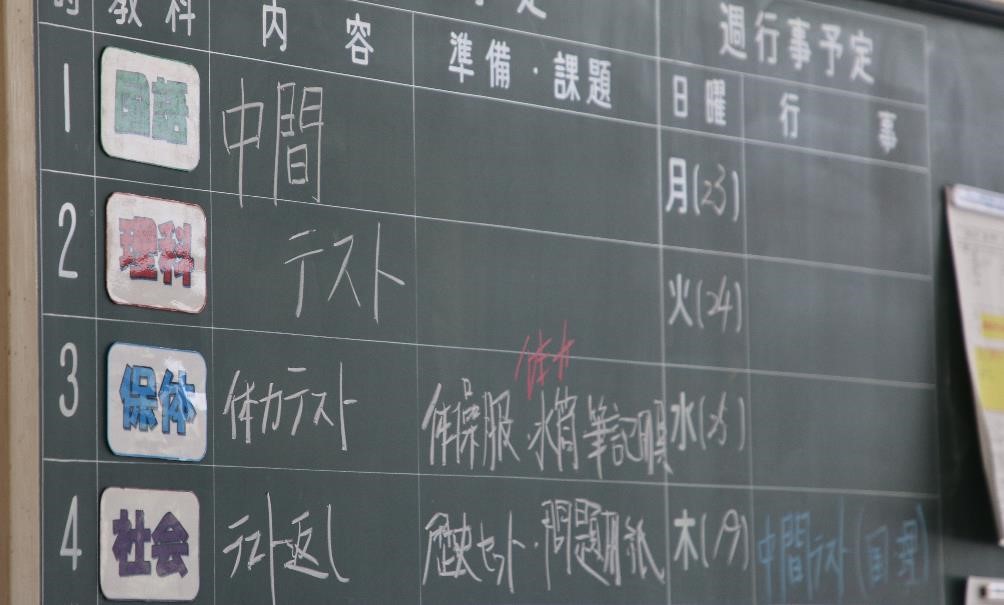 教科 内容 準備・課題
週行事予定
日曜 行事
1 国語 中間
2 理科 テスト
3 保体 体力テスト 体操服・水筒 筆記用具
4 社会 テスト返し 歴史セット・問題用紙
月(23)
火(24)
水(25)
木( ) 中間テスト(国理)